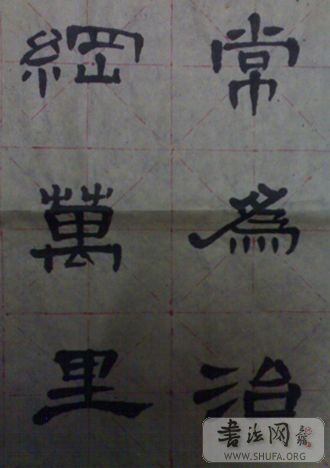 常為治
綱萬里
書法网
WWW.SHUFA.ORG